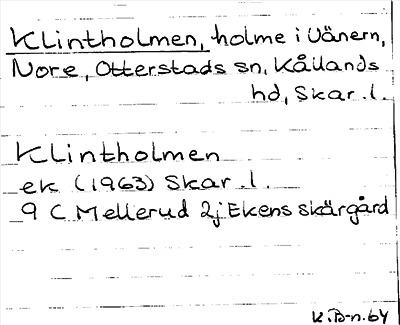 Klintholmen, holme i Vänern,
Nore, Otterstads sn, Kållands
hd, Skar. l.
Klintholmen
ek (1963) Skar. l.
9 C Mellerud 2j Ekens skärgård
K. B-n. 64